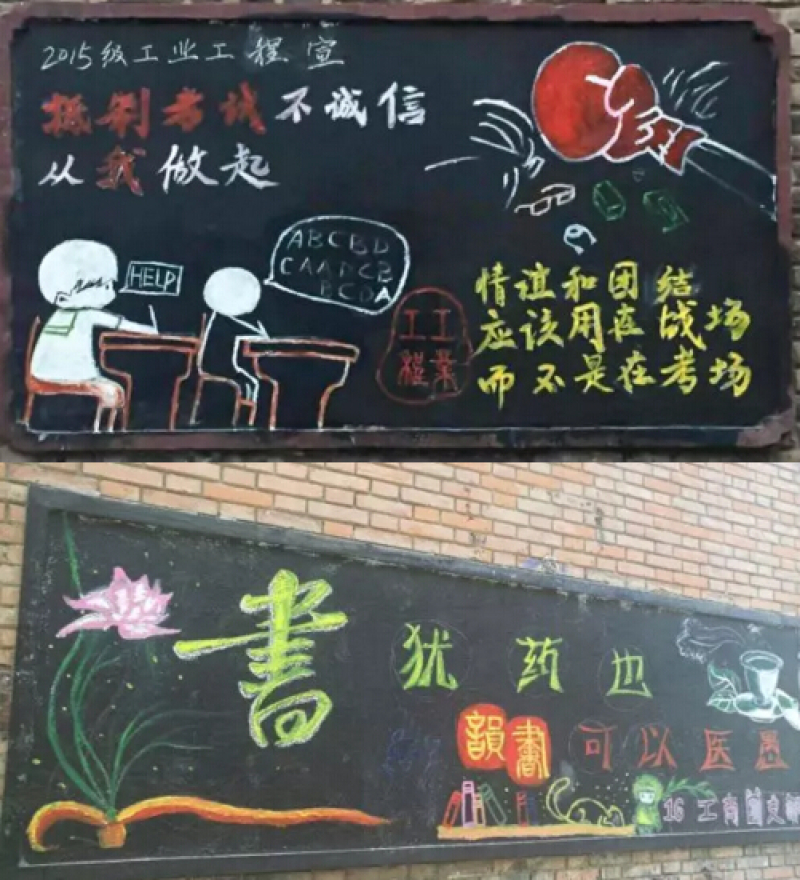 2015级工业工程宣
抵制考试不诚信
从我做起
HELP
ABCBD
CAADCB
BCDA
工業
工程
情谊和团结
应该用在战场
而不是在考场
書犹药也
韻書可以医愚
16工商